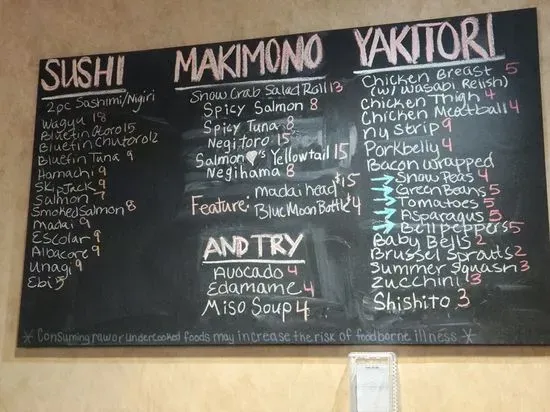 SUSHI
2pc Sashimi/Nigiri
Wagyu 18
Bluefin Otoro 15
Bluefin Chutoro 12
Bluefin Tuna 9
Hamachi 9
Skipjack 9
Salmon 7
Smoked Salmon 8
Madai 9
Escolar 9
Albacore 9
Unagi 9
Ebi 5
MAKIMONO
Snow Crab Salad Roll 13
Spicy Salmon 8
Spicy Tuna 8
Negitoro 15
Salmon ♥'s Yellowtail 15
Negihama 8
Feature: madai head $15
Blue Moon Bottle $4
AND TRY
Avocado 4
Edamame 4
Miso Soup 4
YAKITORI
Chicken Breast 5
(w/ Wasabi Relish)
Chicken Thigh 4
Chicken Meatball 4
ny strip 9
Porkbelly 4
Bacon wrapped
→ Snow Peas 4
→ Green Beans 5
→ Tomatoes 5
→ Asparagus 5
→ Bell peppers 5
Baby Bells 2
Brussel Sprouts 2
Summer Squash 3
Zucchini 3
Shishito 3
* Consuming raw or undercooked foods may increase the risk of foodborne illness *